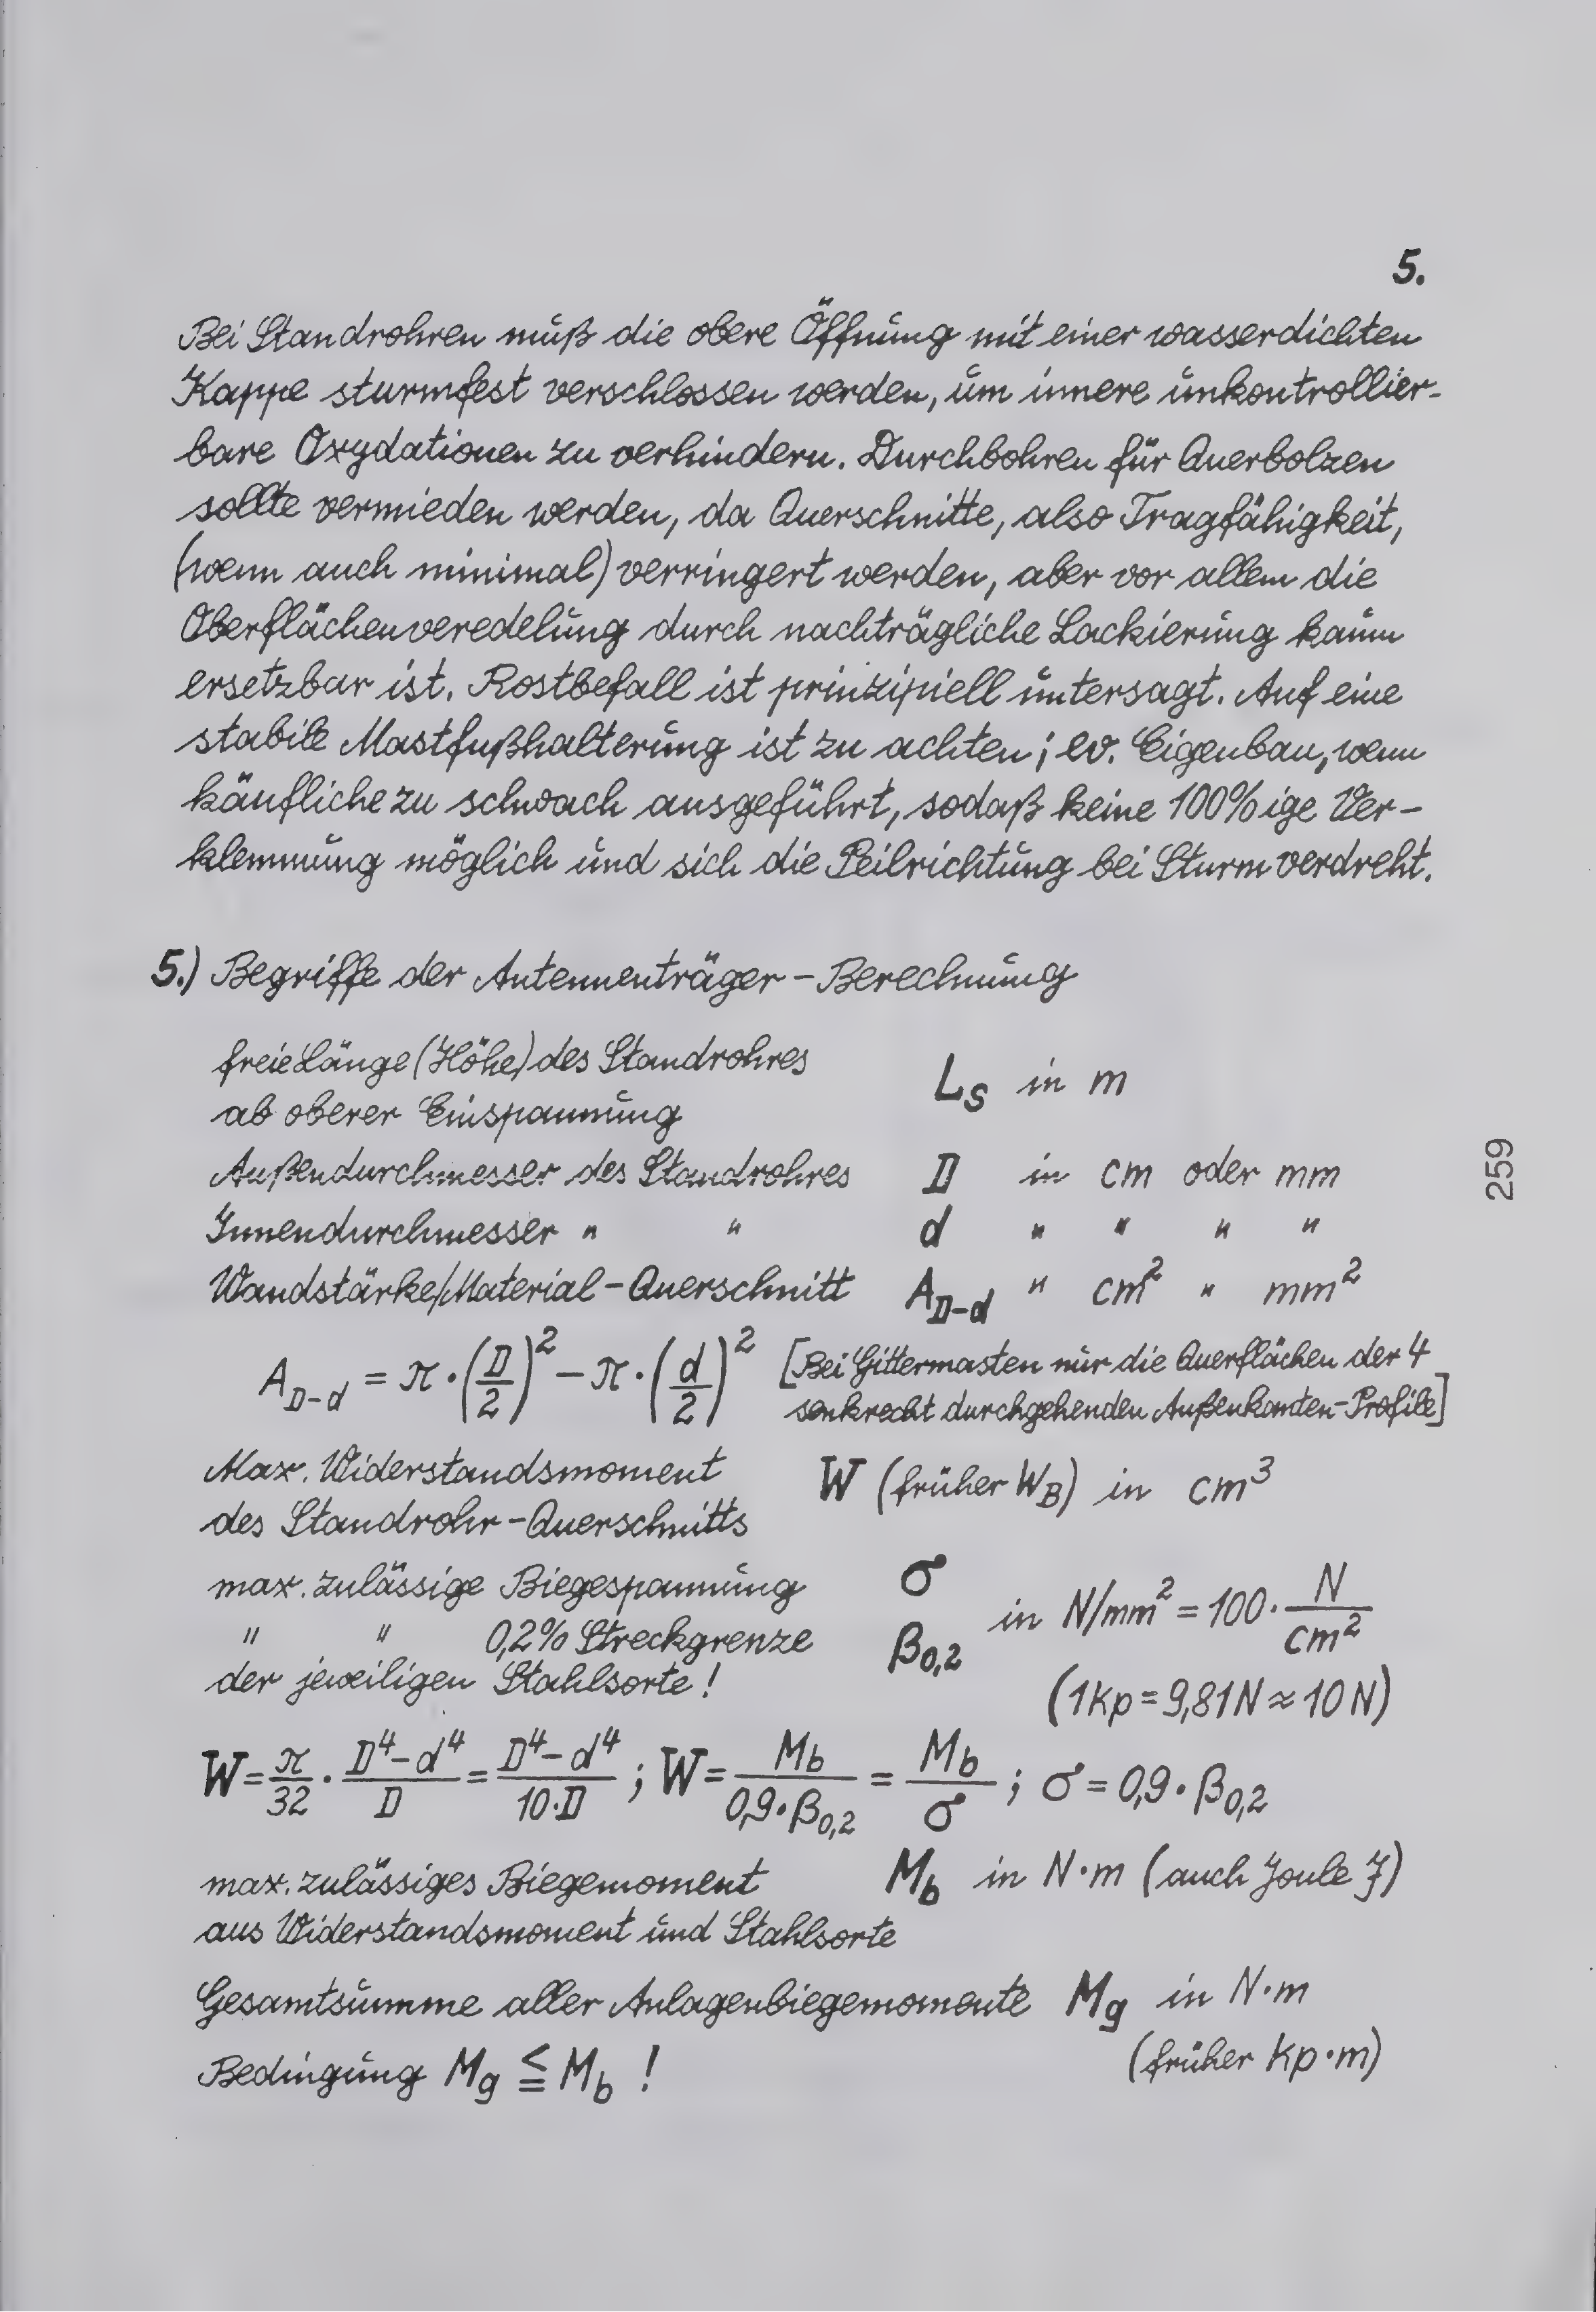 5.
Bei Standrohren muß die obere Öffnung mit einer wasserdichten
Kappe sturmfest verschlossen werden, um innere unkontrollier-
bare Oxydationen zu verhindern. Durchbohren für Querbolzen
sollte vermieden werden, da Querschnitte, also Tragfähigkeit,
(wenn auch minimal) verringert werden, aber vor allem die
Oberflächenveredelung durch nachträgliche Lackierung kaum
ersetzbar ist. Rostbefall ist prinzipiell untersagt. Auf eine
stabile Mastfußhalterung ist zu achten; ev. Eigenbau, wenn
käufliche zu schwach ausgeführt, sodaß keine 100%ige Ver-
klemmung möglich und sich die Peilrichtung bei Sturm verdreht.
5.) Begriffe der Antennenträger-Berechnung
freie Länge (Höhe) des Standrohres
ab oberer Einspannung L_S in m
Außendurchmesser des Standrohres D in cm oder mm
Innendurchmesser " " d " " " "
Wandstärke/Material-Querschnitt A_{D-d} " cm² " mm²
A_{D-d} = π · (D/2)² − π · (d/2)² [Bei Gittermasten nur die Querflächen der 4
senkrecht durchgehenden Außenkanten-Profile]
Max. Widerstandsmoment W (früher W_B) in cm³
des Standrohr-Querschnitts
max. zulässige Biegespannung σ
" " 0,2% Streckgrenze β_{0,2} in N/mm² = 100 · N/cm²
der jeweiligen Stahlsorte!
(1kp = 9,81N ≈ 10N)
W = π/32 · (D⁴−d⁴)/D = (D⁴−d⁴)/(10·D) ; W = M_b/(0,9·β_{0,2}) = M_b/σ ; σ = 0,9 · β_{0,2}
max. zulässiges Biegemoment M_b in N·m (auch Joule J)
aus Widerstandsmoment und Stahlsorte
Gesamtsumme aller Anlagenbiegemomente M_g in N·m
(früher kp·m)
Bedingung M_g ≦ M_b !
259